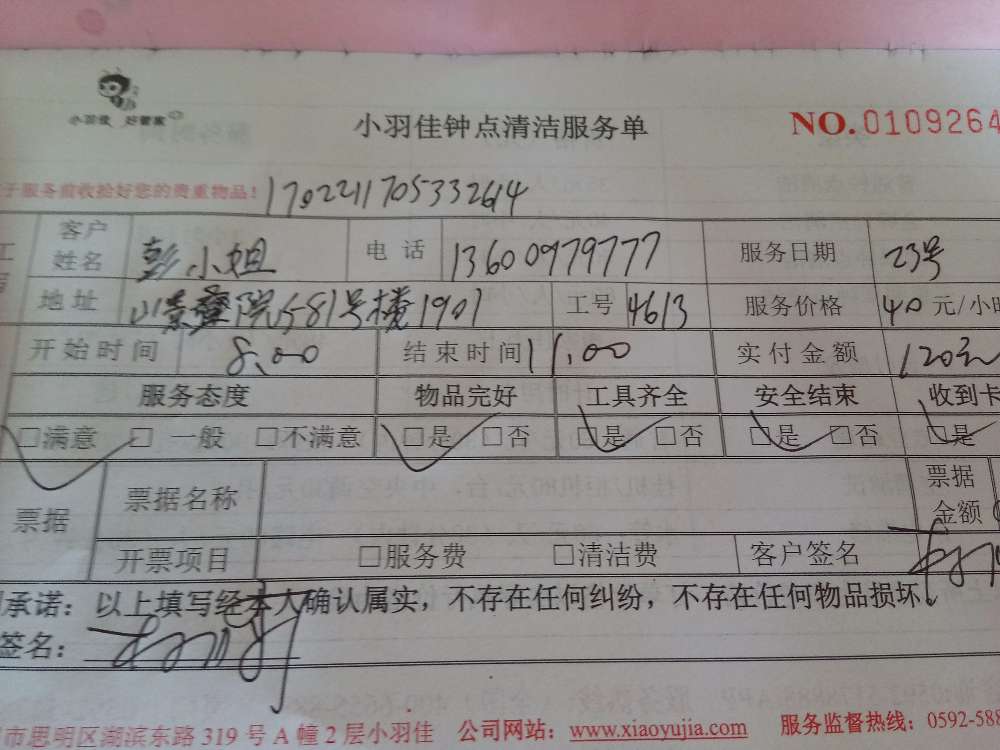 小羽佳 好管家
小羽佳钟点清洁服务单
NO.0109264
于服务前收拾好您的贵重物品！
17022117053326​14
客户姓名 彭小姐 电话 13600979777 服务日期 23号
地址 581号楼1901 工号 4613 服务价格 40 元/小时
开始时间 8.00 结束时间 11.00 实付金额 120元
服务态度 物品完好 工具齐全 安全结束 收到卡
□满意 □一般 □不满意 □是 □否 □是 □否 □是 □否 □是
票据 票据名称 票据金额
开票项目 □服务费 □清洁费 客户签名
承诺：以上填写经本人确认属实，不存在任何纠纷，不存在任何物品损坏
签名：
市思明区湖滨东路 319 号 A 幢 2 层小羽佳 公司网站：www.xiaoyujia.com 服务监督热线：0592-588